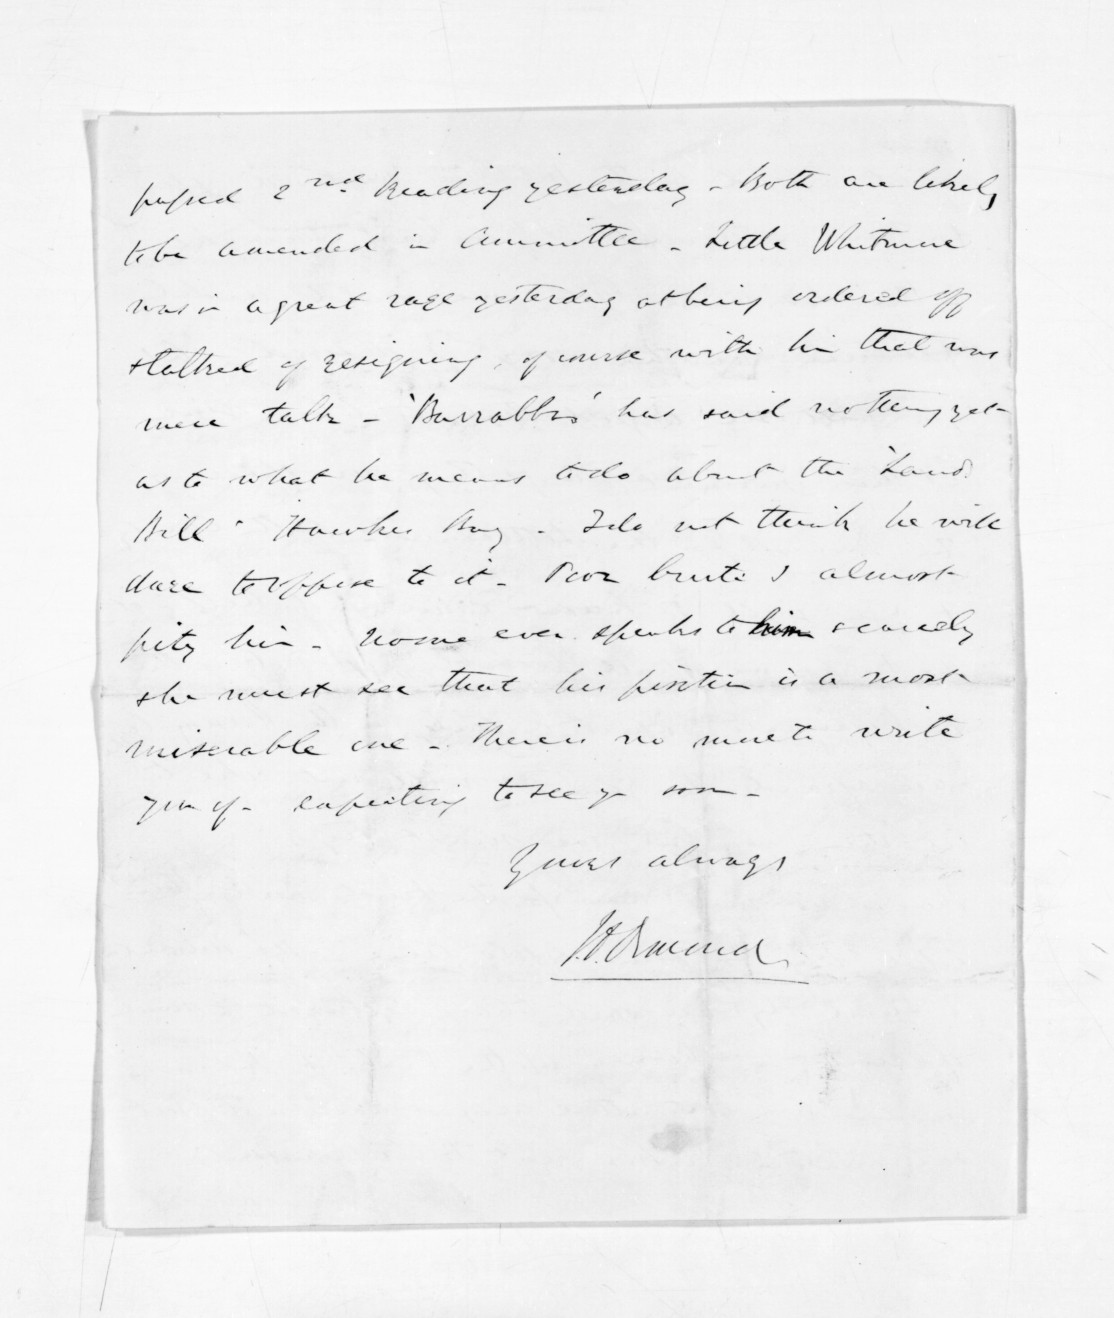 passed 2nd Reading yesterday - Both are likely
to be amended in Committee - Little Whitmore
was in a great rage yesterday at being ordered off
& talked of resigning, of course with him that was
mere talk - 'Barrabbas' has said nothing yet
as to what he means to do about the 'Land
Bill' Hawkes Bay - I do not think he will
dare to oppose to it - Poor brute I almost
pity him - No one ever speaks to him scarcely
& he must see that his position is a most
miserable one - There is no more to write
you of - expecting to see you soon -
Yours always
J.D. Ormond